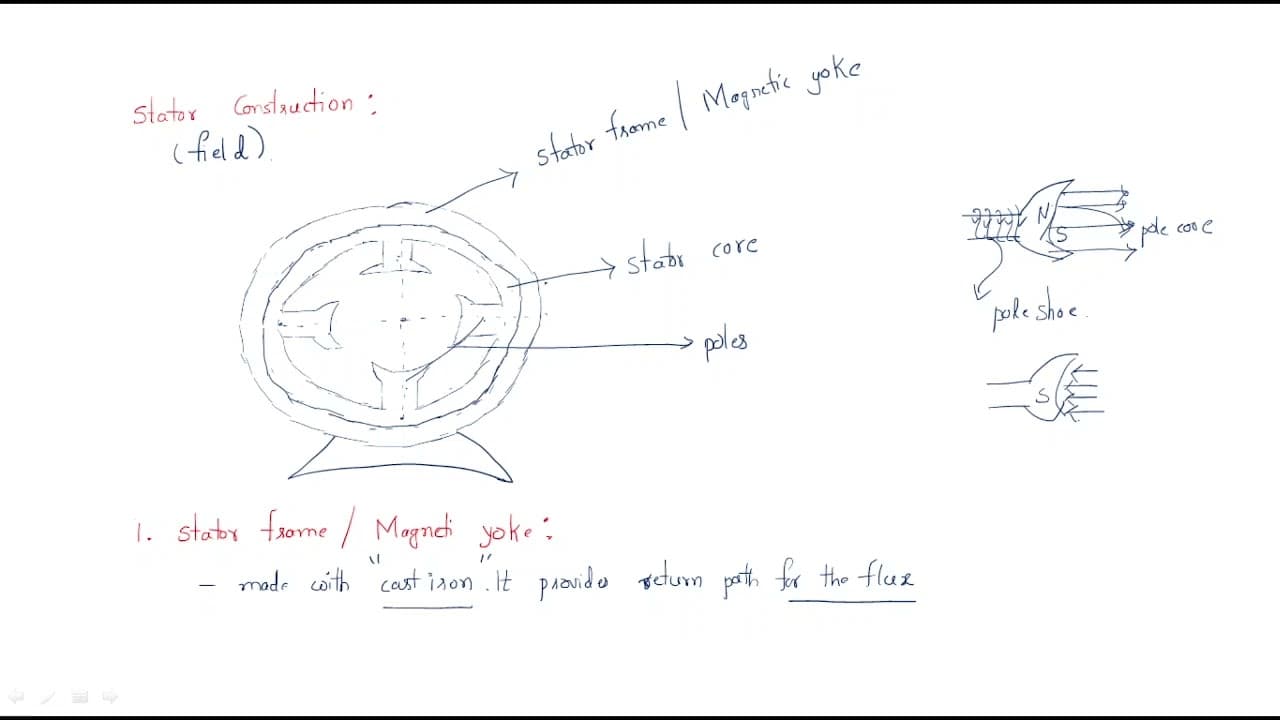 Stator Construction :
(field)
stator frame / Magnetic yoke
stator core
poles
N
S
pole core
pole shoe.
S
1. stator frame / Magneti yoke :
– made with "cast iron". It provides return path for the flux